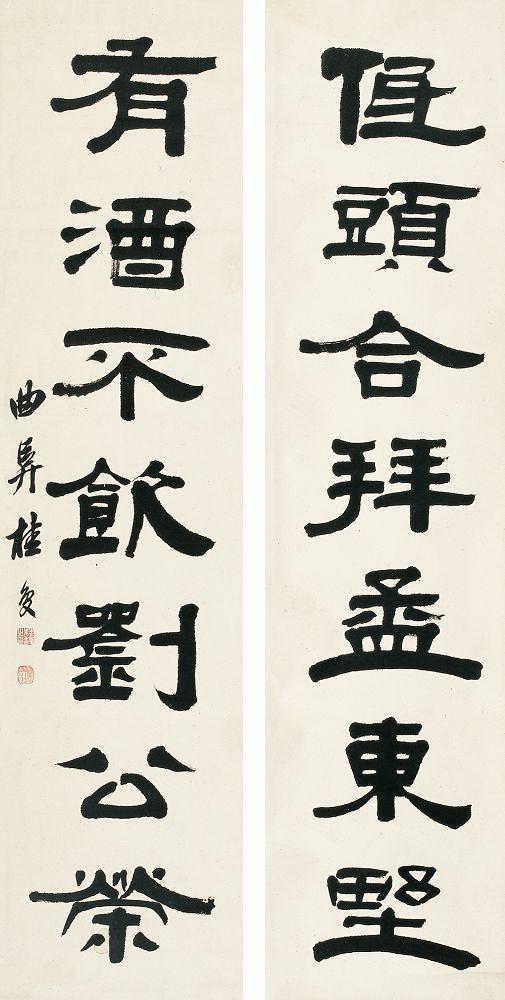 低頭合拜孟東野
有酒不飲劉公榮
曲阜桂复